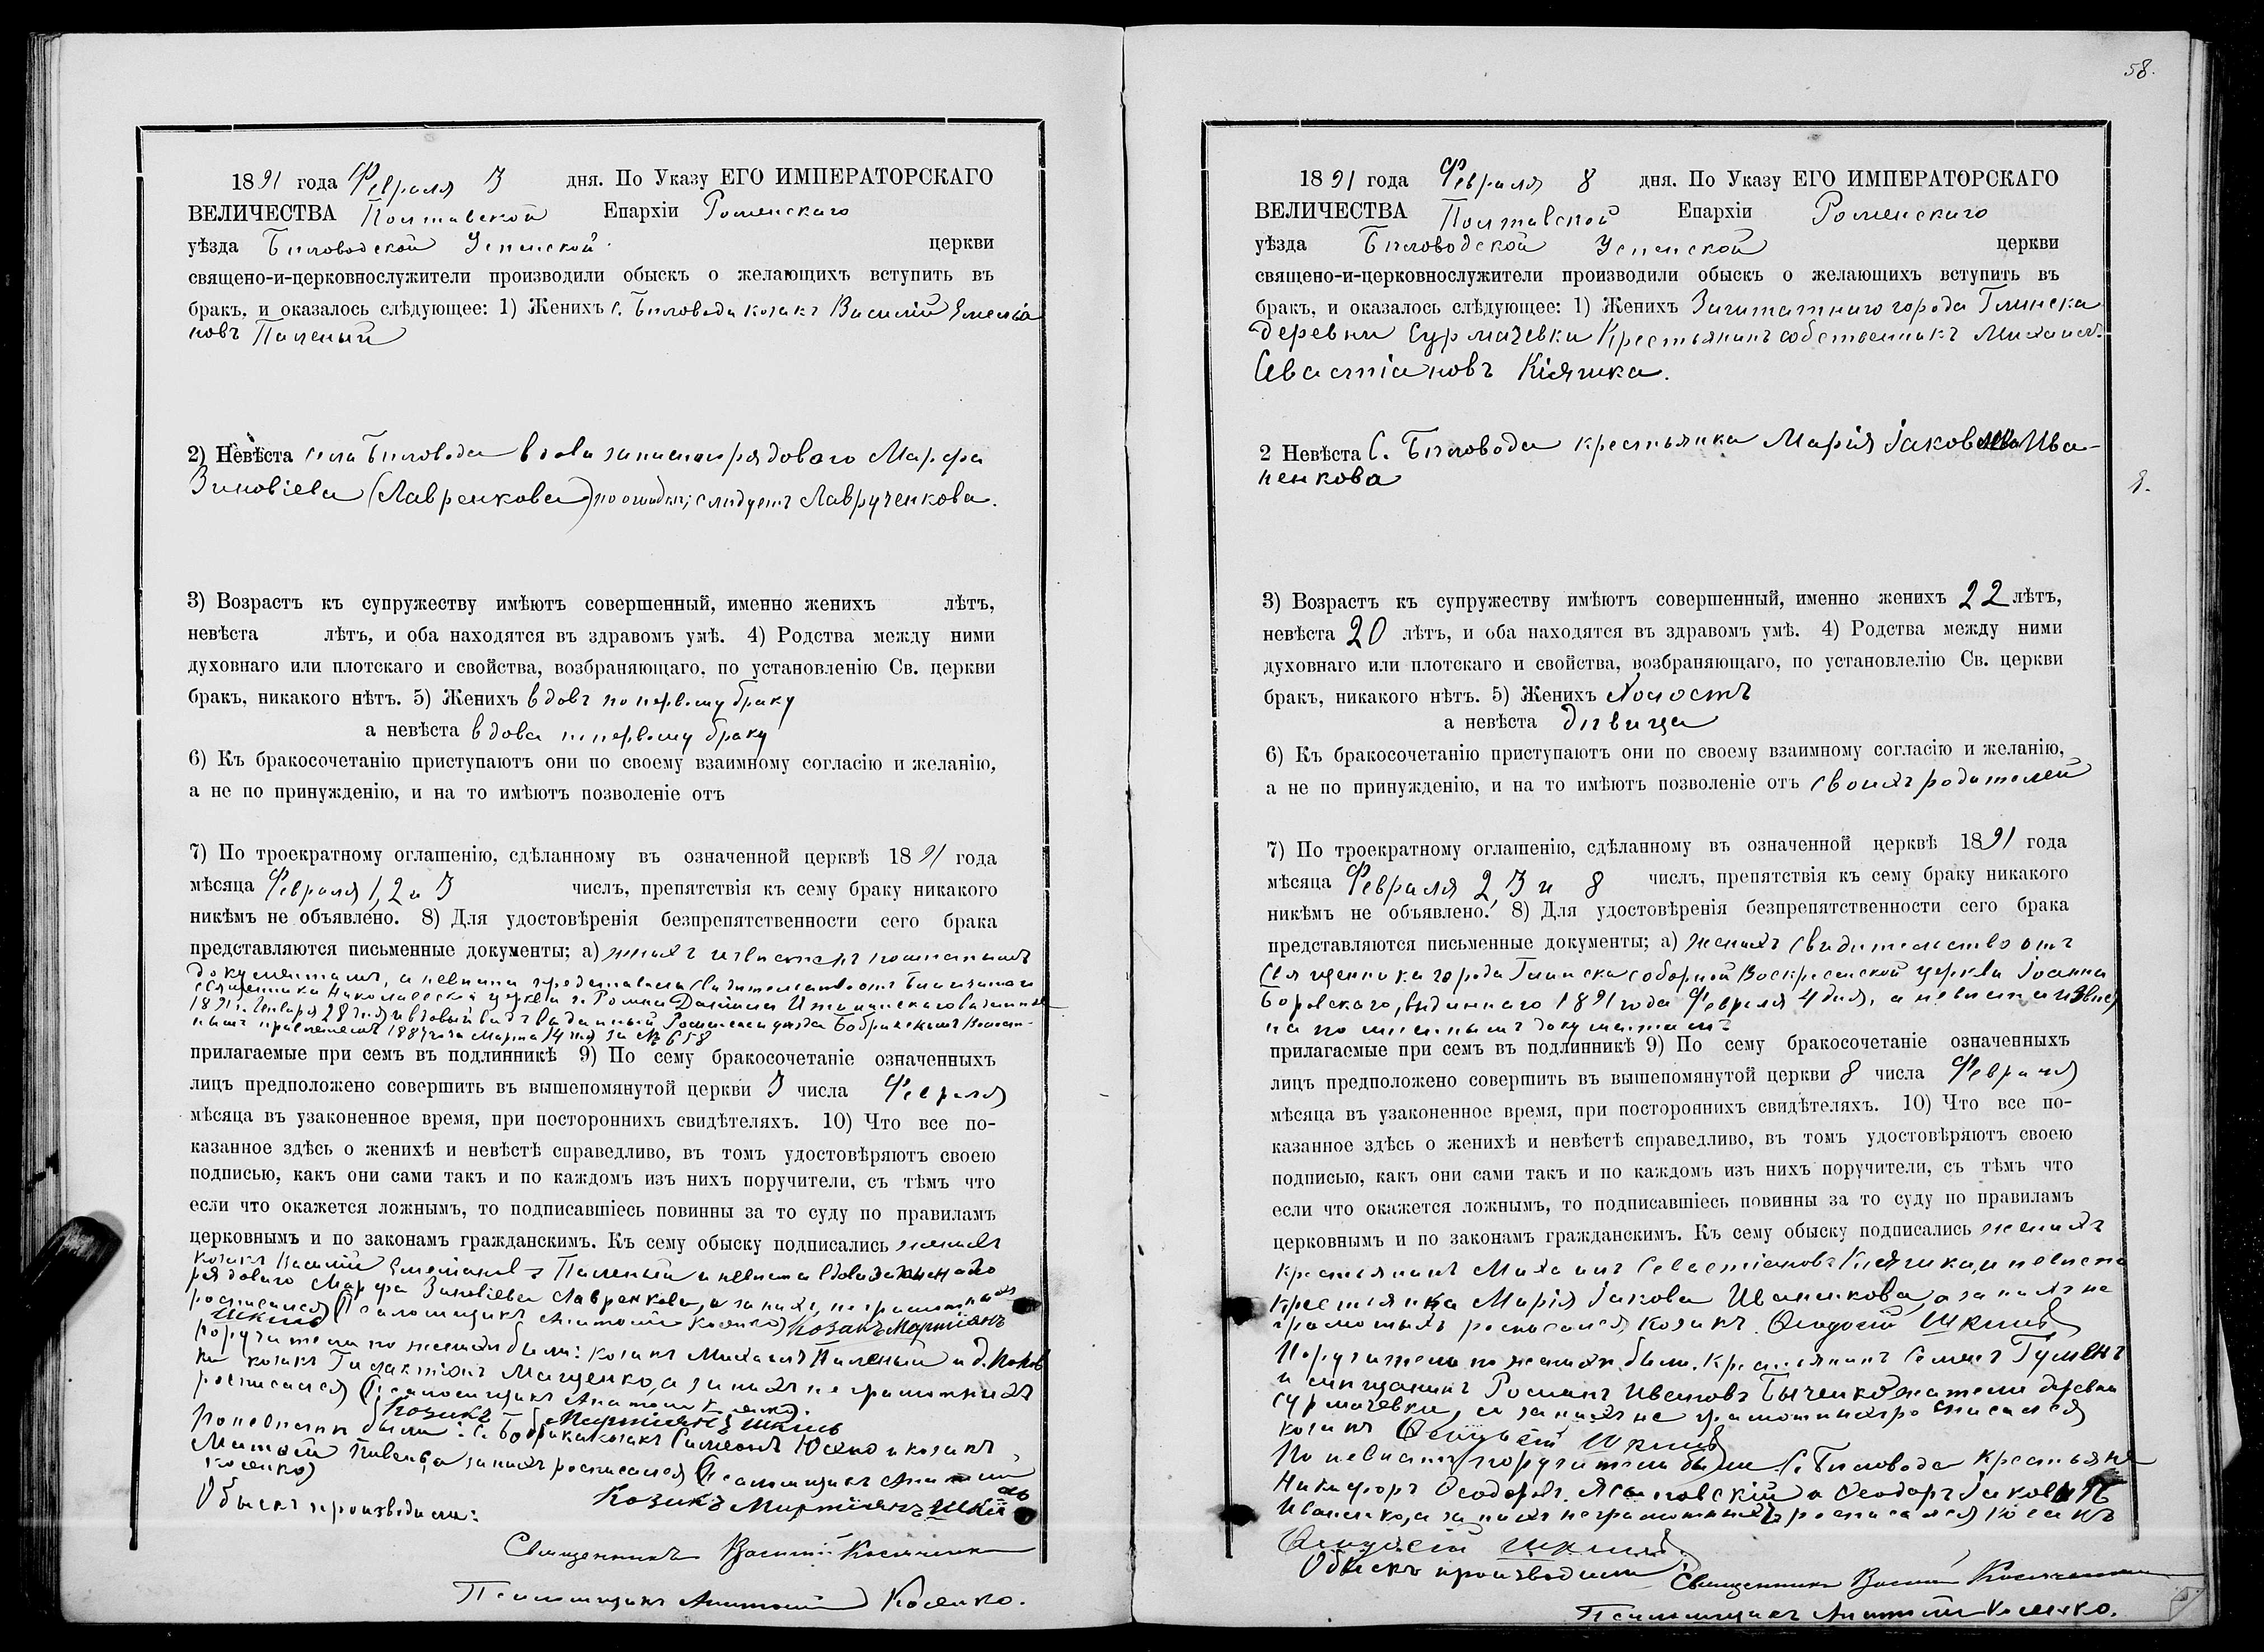 1891 года Февраля 3 дня. По Указу ЕГО ИМПЕРАТОРСКАГО
ВЕЛИЧЕСТВА Полтавской Епархіи Роменскаго
уѣзда Бѣловодской Успенской церкви
священо-и-церковнослужители производили обыскъ о желающихъ вступить въ
бракъ, и оказалось слѣдующее: 1) Женихъ С. Бѣловода козакъ Василій Емелья
новъ Паленый
2) Невѣста села Бѣловода вдова запаснорядового Марфа
Зиновіева (Лавренкова) по ошибкѣ; слѣдуетъ Лаврученкова.
3) Возрастъ къ супружеству имѣютъ совершенный, именно женихъ лѣтъ,
невѣста лѣтъ, и оба находятся въ здравомъ умѣ. 4) Родства между ними
духовнаго или плотскаго и свойства, возбраняющаго, по установленію Св. церкви
бракъ, никакого нѣтъ. 5) Женихъ вдовъ по первому браку
а невѣста вдова по первому браку
6) Къ бракосочетанію приступаютъ они по своему взаимному согласію и желанію,
а не по принужденію, и на то имѣютъ позволеніе отъ
7) По троекратному оглашенію, сдѣланному въ означенной церквѣ 1891 года
мѣсяца Февраля 1, 2 и 3 числъ, препятствія къ сему браку никакого
никѣмъ не объявлено. 8) Для удостовѣренія безпрепятственности сего брака
представляются письменные документы; а) женихъ извѣстенъ по
документамъ, а невѣста представила свидѣтельство отъ
священника Николаевской церкви г. Ромна Даніила
1891 г. Января 28 дня и вдовый видъ выданный Роменскаго уѣзда Бобрикскимъ Волост-
нымъ правленіемъ Марта 14 дня за № 658
прилагаемые при семъ въ подлинникѣ 9) По сему бракосочетаніе означенныхъ
лицъ предположено совершить въ вышепомянутой церкви 3 числа Февраля
мѣсяца въ узаконенное время, при постороннихъ свидѣтеляхъ. 10) Что все по-
казанное здѣсь о женихѣ и невѣстѣ справедливо, въ томъ удостовѣряютъ своею
подписью, какъ они сами такъ и по каждомъ изъ нихъ поручители, съ тѣмъ что
если что окажется ложнымъ, то подписавшіесь повинны за то суду по правиламъ
церковнымъ и по законамъ гражданскимъ. Къ сему обыску подписались женихъ
козакъ Василій Емеліановъ Паленый и невѣста вдова запасного
рядового Марфа Зиновіева Лавренкова, а за нихъ, неграмотныхъ
росписался (Псаломщикъ Анатолій Косенко) Козакъ Мартіянъ
Шкиль
поручители по женихѣ были: козакъ Михаилъ Паленый и д.
козакъ Галактіонъ Маценко, а за нихъ неграмотныхъ
росписался (Псаломщикъ Анатолій Косенко).
Козакъ Мартіянъ Шкиль
По невѣстѣ были: С. Бобрика козакъ Симеонъ Юхно и козакъ
Матфей Пивень, а за нихъ росписался (Псаломщикъ Анатолій
Косенко)
Козакъ Мартіянъ Шкиль
Обыскъ производили:
Священникъ Василій
Псаломщикъ Анатолій Косенко.
58.
1891 года Февраля 8 дня. По Указу ЕГО ИМПЕРАТОРСКАГО
ВЕЛИЧЕСТВА Полтавской Епархіи Роменскаго
уѣзда Бѣловодской Успенской церкви
священо-и-церковнослужители производили обыскъ о желающихъ вступить въ
бракъ, и оказалось слѣдующее: 1) Женихъ Заштатнаго города Глинска
деревни Сурмачевки Крестьянинъ собственникъ Михаилъ
Севастіановъ Кіяшка.
2 Невѣста С. Бѣловода крестьянка Марія Іаковлева Ива-
ненкова
8.
3) Возрастъ къ супружеству имѣютъ совершенный, именно женихъ 22 лѣтъ,
невѣста 20 лѣтъ, и оба находятся въ здравомъ умѣ. 4) Родства между ними
духовнаго или плотскаго и свойства, возбраняющаго, по установлелію Св. церкви
бракъ, никакого нѣтъ. 5) Женихъ Холостъ
а невѣста дѣвица
6) Къ бракосочетанію приступаютъ они по своему взаимному согласію и желанію,
а не по принужденію, и на то имѣютъ позволеніе отъ своихъ родителей
7) По троекратному оглашенію, сдѣланному въ означенной церквѣ 1891 года
мѣсяца Февраля 2, 3 и 8 числъ, препятствія къ сему браку никакого
никѣмъ не объявлено. 8) Для удостовѣренія безпрепятственности сего брака
представляются письменные документы; а) женихъ свидѣтельство отъ
Священника города Глинска соборной Воскресенской церкви Іоанна
Боровскаго, выданнаго 1891 года Февраля 4 дня, а невѣста извѣст
на по документамъ
прилагаемые при семъ въ подлинникѣ 9) По сему бракосочетаніе означенныхъ
лицъ предположено совершить въ вышепомянутой церкви 8 числа Февраля
мѣсяца въ узаконенное время, при постороннихъ свидѣтеляхъ. 10) Что все по-
казанное здѣсь о женихѣ и невѣстѣ справедливо, въ томъ удостовѣряютъ своею
подписью, какъ они сами такъ и по каждомъ изъ нихъ поручители, съ тѣмъ что
если что окажется ложнымъ, то подписавшіесь повинны за то суду по правиламъ
церковнымъ и по законамъ гражданскимъ. Къ сему обыску подписались женихъ
крестьянинъ Михаилъ Севастіановъ Кіяшка, и невѣста
крестьянка Марія Іакова Иваненкова, а за нихъ не
грамотныхъ росписался козакъ Ѳеодосій Шкиль
Поручители по женихѣ были: крестьянинъ Семенъ Гуменъ
и мѣщанинъ Романъ Ивановъ Быченко жители деревни
Сурмачевки, а за нихъ не грамотныхъ росписался
козакъ Ѳеодосій Шкиль
По невѣстѣ поручители были С. Бѣловода крестьяне
Никифоръ Ѳеодоровъ Ясновскій и Ѳеодоръ Іаковлевъ
Иваненко, а за нихъ неграмотныхъ росписался козакъ
Ѳеодосій Шкиль
Обыскъ производили
Священникъ Василій
Псаломщикъ Анатолій Косенко.